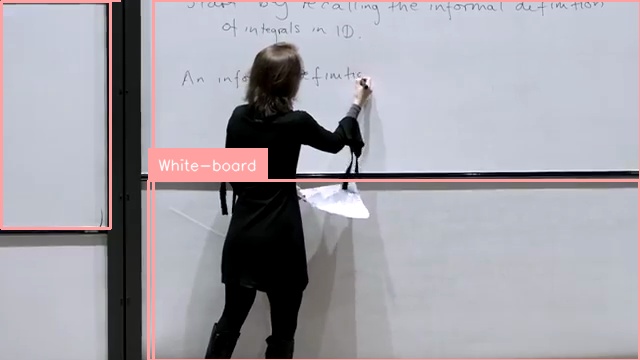 Start by recalling the informal definition
of integrals in 1D.
An
White-board